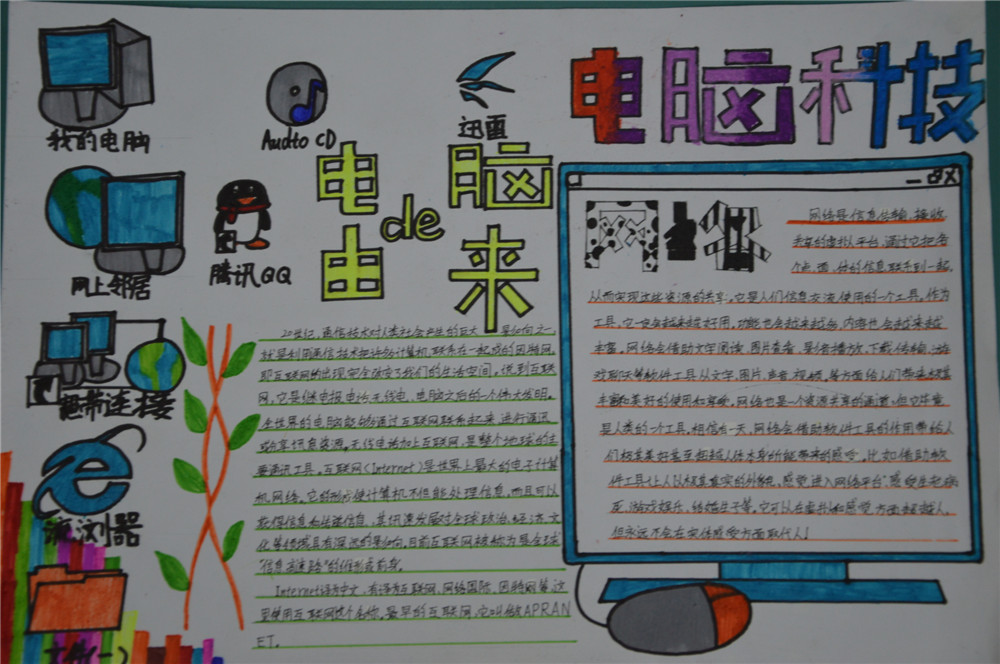 电脑科技
我的电脑
Audto CD
迅雷
网上邻居
腾讯QQ
宽带连接
浏览器
文件(一)
电脑
de
由来
20世纪,通信技术对人类社会产生的巨大影响之一,
就是利用通信技术把许多计算机联系在一起形成的因特网,
即互联网的出现完全改变了我们的生活空间,说到互联
网,它是继电报、电话、无线电、电脑之后的一个伟大发明。
全世界的电脑能够通过互联网联系起来,进行通讯
或分享讯息资源。无线电话加上互联网,是整个地球的主
要通讯工具。互联网(Internet)是世界上最大的电子计算
机网络。它的形成使计算机不但能处理信息,而且可以
获得信息和传递信息,其迅速发展对全球政治、经济、文
化等领域具有深远的影响。目前互联网被称为是全球
"信息高速路"的雏形或前身。
Internet译为中文,有译为互联网、网络国际、因特网等,这
里使用互联网这个名称。最早的互联网,它叫做APRAN
ET。
网上冲浪
网络是信息传输、接收、
共享的虚拟平台,通过它把各
个点、面、体的信息联系到一起,
从而实现这些资源的共享,它是人们信息交流使用的一个工具。作为
工具,它一定会越来越好用,功能也会越来越多,内容也会越来越
丰富。网络会借助文字阅读、图片查看、影音播放、下载传输、游
戏聊天等软件工具从文字、图片、声音、视频等方面给人们带来极其
丰富和美好的使用和享受。网络也是一个资源共享的通道,但它毕竟
是人类的一个工具,相信有一天,网络会借助软件工具的作用带给人
们极其美好甚至超越人体本身所能带来的感受。比如借助软
件工具让人以极其真实的外貌、感觉进入网络平台,感受生老病
死、游戏娱乐、结婚生子等。它可以在虚拟和感觉方面超越人,
但永远不会在实体感受方面取代人!